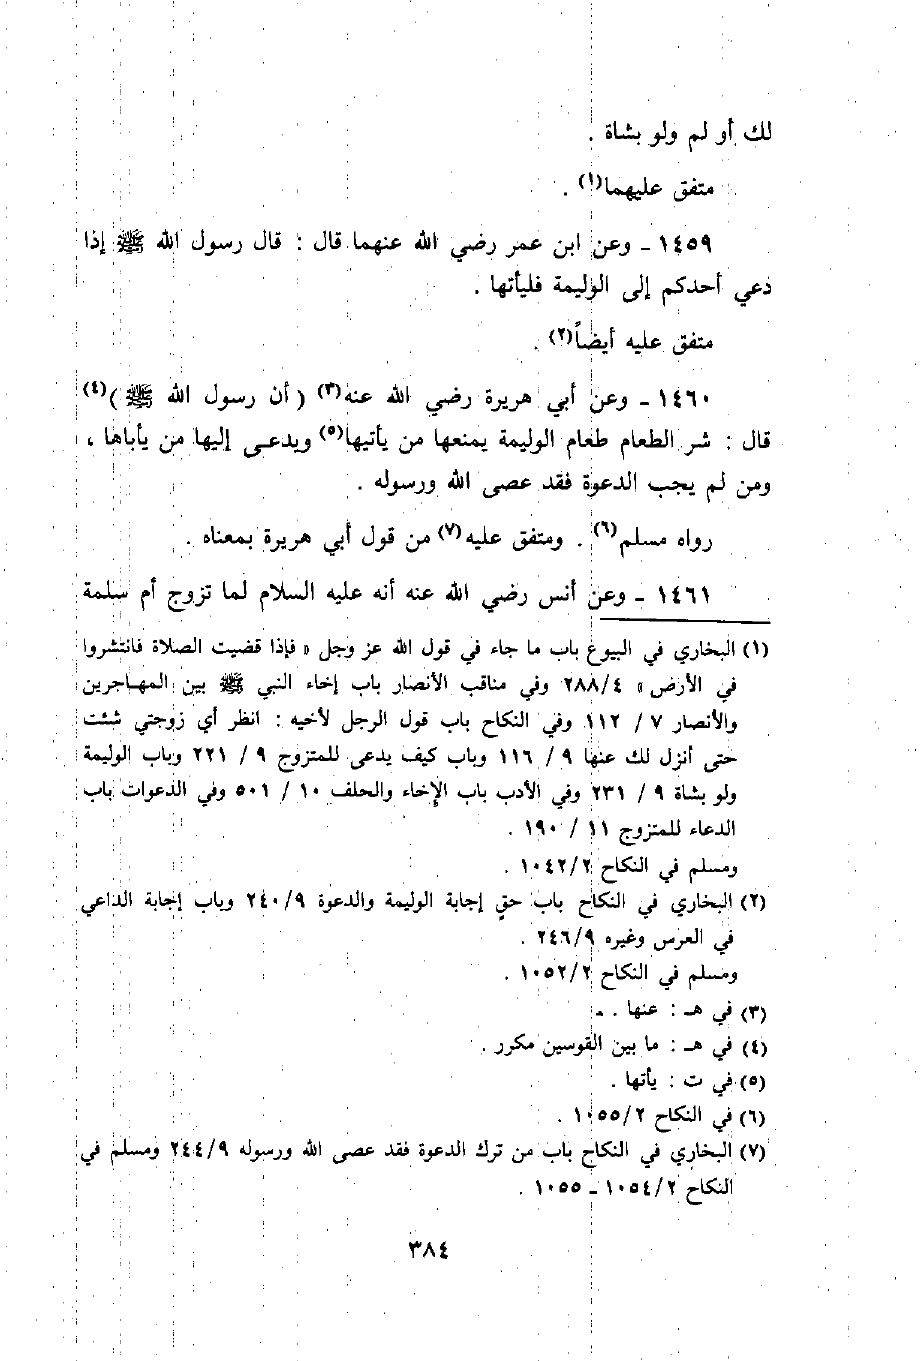 لك أو لم ولو بشاة .
متفق عليهما(١) .
١٤٥٩ ـ وعن ابن عمر رضي الله عنهما قال : قال رسول الله ﷺ إذا
دعي أحدكم إلى الوليمة فليأتها .
متفق عليه أيضاً(٢) .
١٤٦٠ ـ وعن أبي هريرة رضي الله عنه(٣) ( أن رسول الله ﷺ )(٤)
قال : شر الطعام طعام الوليمة يمنعها من يأتيها(٥) ويدعى إليها من يأباها ،
ومن لم يجب الدعوة فقد عصى الله ورسوله .
رواه مسلم(٦) . ومتفق عليه(٧) من قول أبي هريرة بمعناه .
١٤٦١ ـ وعن أنس رضي الله عنه أنه عليه السلام لما تزوج أم سلمة
(١) البخاري في البيوع باب ما جاء في قول الله عز وجل « فإذا قضيت الصلاة فانتشروا
في الأرض » ٢٨٨/٤ وفي مناقب الأنصار باب إخاء النبي ﷺ بين المهاجرين
والأنصار ٧ / ١١٢ وفي النكاح باب قول الرجل لأخيه : انظر أي زوجتي شئت
حتى أنزل لك عنها ٩ / ١١٦ وباب كيف يدعى للمتزوج ٩ / ٢٢١ وباب الوليمة
ولو بشاة ٩ / ٢٣١ وفي الأدب باب الإخاء والحلف ١٠ / ٥٠١ وفي الدعوات باب
الدعاء للمتزوج ١١ / ١٩٠ .
ومسلم في النكاح ١٠٤٢/٢ .
(٢) البخاري في النكاح باب حق إجابة الوليمة والدعوة ٢٤٠/٩ وباب إجابة الداعي
في العرس وغيره ٢٤٦/٩ .
ومسلم في النكاح ١٠٥٢/٢ .
(٣) في هـ : عنها .
(٤) في هـ : ما بين القوسين مكرر .
(٥) في ت : يأتها .
(٦) في النكاح ١٠٥٥/٢ .
(٧) البخاري في النكاح باب من ترك الدعوة فقد عصى الله ورسوله ٢٤٤/٩ ومسلم في
النكاح ١٠٥٤/٢ ـ ١٠٥٥ .
٣٨٤